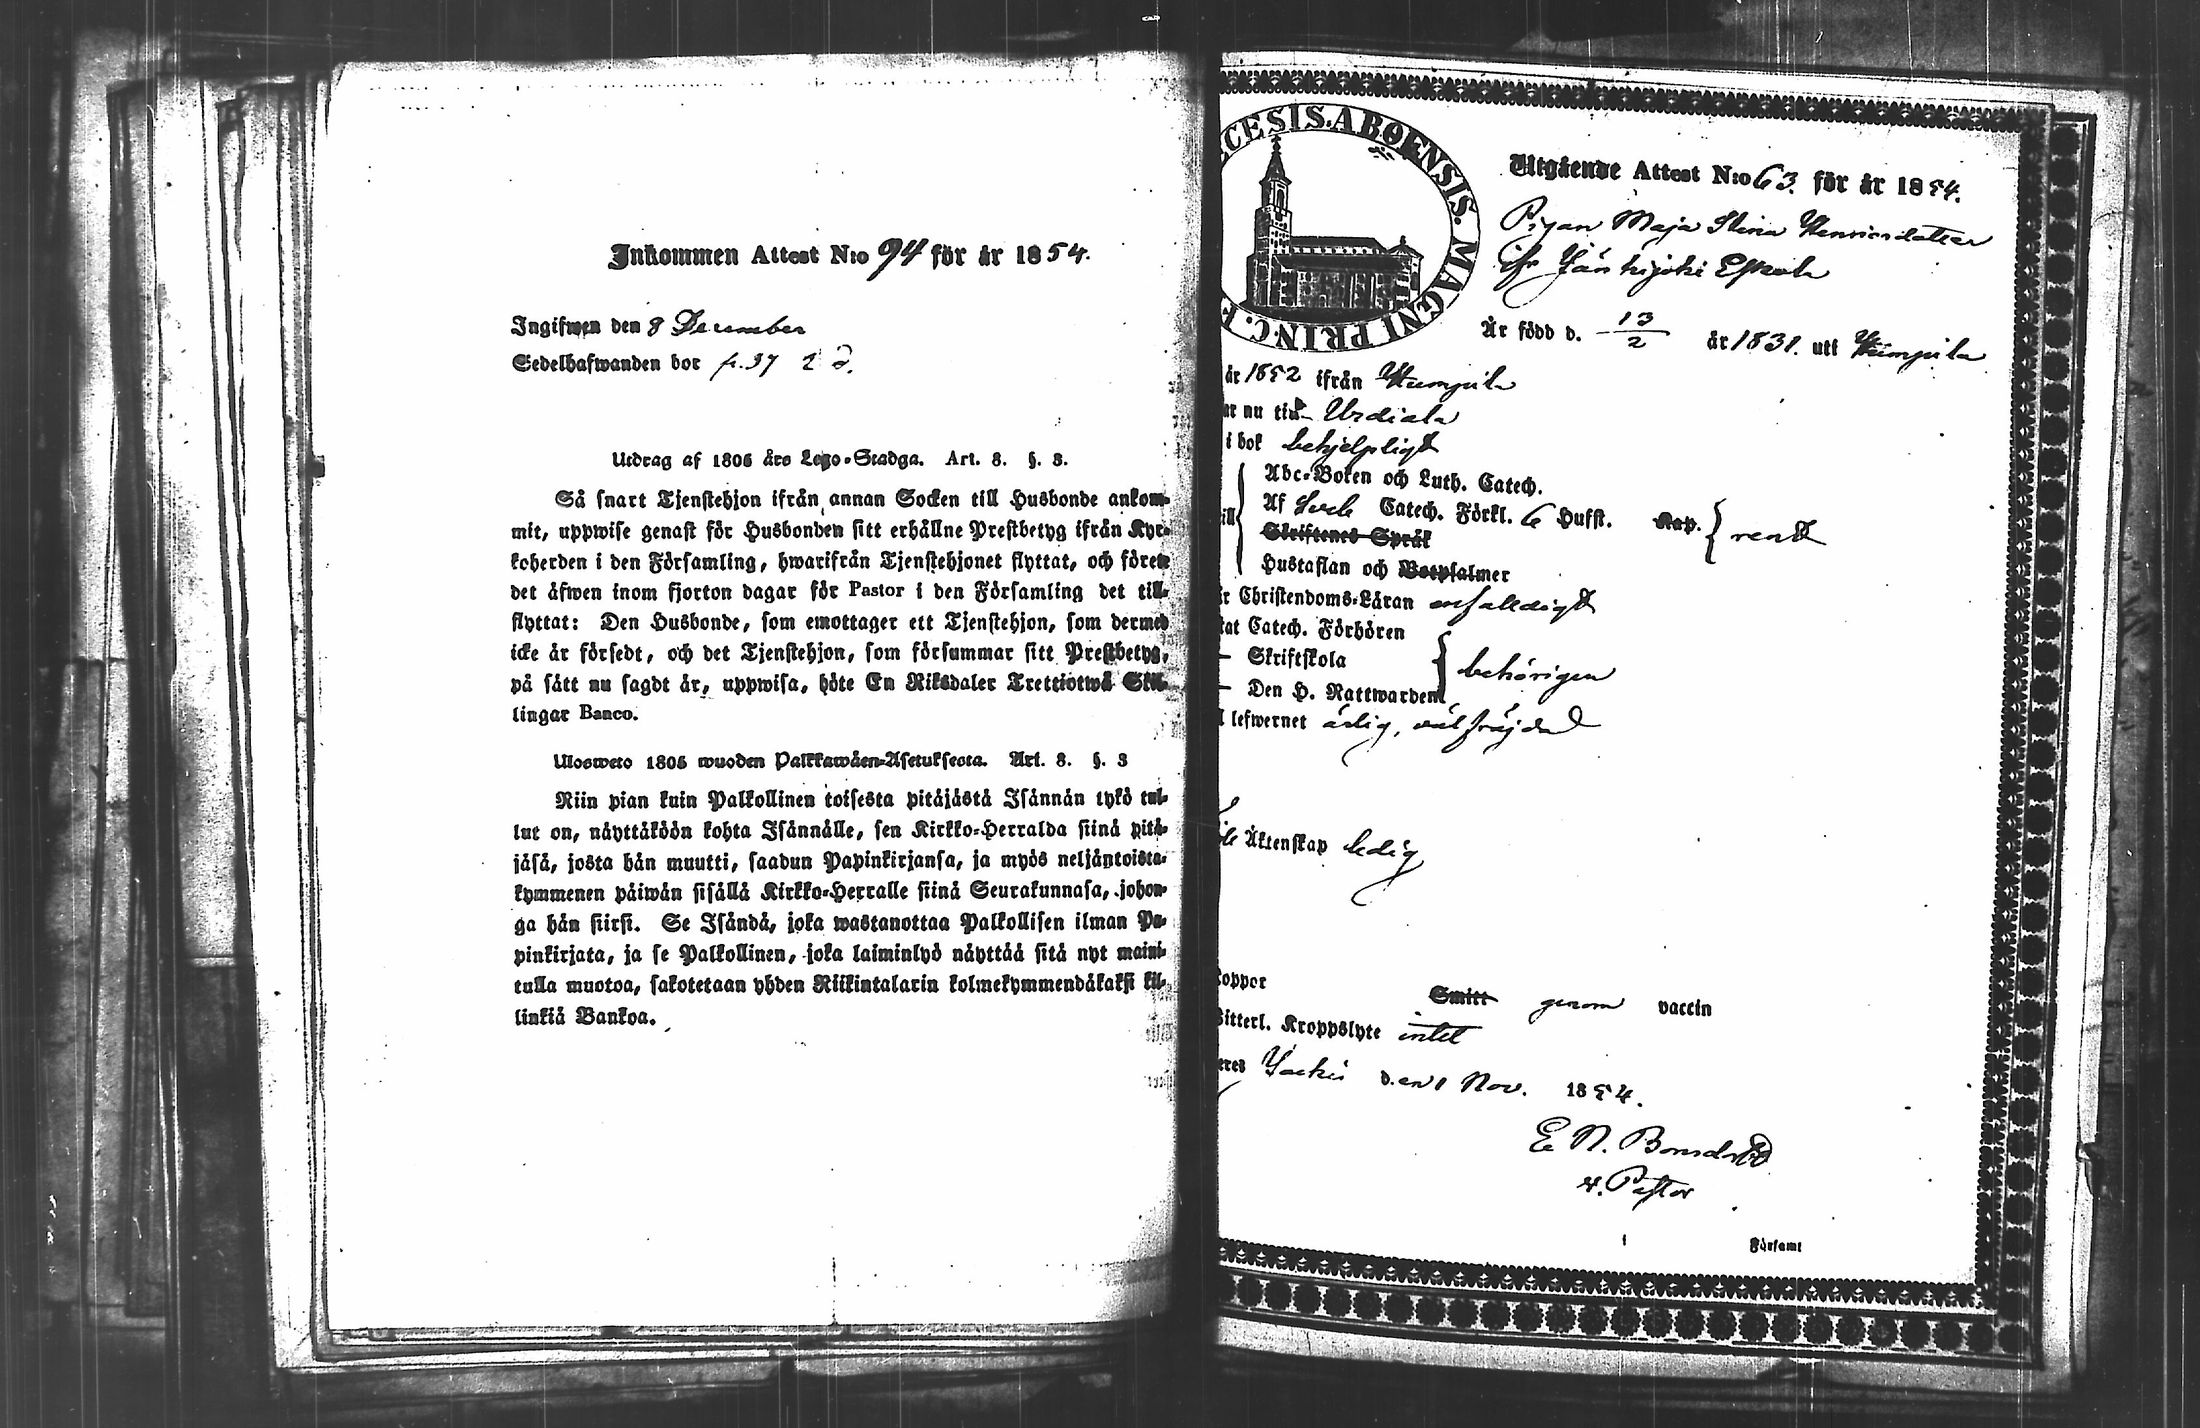 Inkommen Attest N:o 94 för år 1854.
Ingifwen den 8 December
Sedelhafwanden bor p. 37
Utdrag af 1805 års Lego-Stadga. Art. 8. §. 3.
Så snart Tjenstehjon ifrån annan Socken till Husbonde ankom-
mit, uppwise genast för Husbonden sitt erhållne Prestbetyg ifrån Kyr-
koherden i den Församling, hwarifrån Tjenstehjonet flyttat, och förete
det äfwen inom fjorton dagar för Pastor i den Församling det till-
flyttat: Den Husbonde, som emottager ett Tjenstehjon, som dermed
icke är försedt, och det Tjenstehjon, som försummar sitt Prestbetyg,
på sätt nu sagdt är, uppwisa, böte En Riksdaler Trettiotwå Skil-
lingar Banco.
Ulosweto 1805 wuoden Palkkawäen-Asetuksesta. Art. 8. §. 3
Niin pian kuin Palkollinen toisesta pitäjästä Isännän tykö tul-
lut on, näyttäköön kohta Isännälle, sen Kirkko-Herralda siinä pitä-
jäsä, josta hän muutti, saadun Papinkirjansa, ja myös neljäntoista-
kymmenen päiwän sisällä Kirkko-Herralle siinä Seurakunnasa, johon-
ga hän siirsi. Se Isändä, joka wastanottaa Palkollisen ilman Pa-
pinkirjata, ja se Palkollinen, joka laiminlyö näyttää sitä nyt maini-
tulla muotoa, sakotetaan yhden Riikintalarin kolmekymmendäkaksi kil-
linkiä Bankoa.
CESIS. ABOENSIS. MAGNI PRINC. F
Utgående Attest N:o 63. för år 1854.
Pigan Maja Stina Henricsdotter
ifr Jänhijoki Eskola
Är född d. 13/2 år 1831. uti Humpila
år 1852 ifrån Humpila
ar nu till Urdiala
i bok behjelpligt
Abc-Boken och Luth. Catech.
Af Catech. Förkl. 6 Hufst. Kap. rent
Skriftenes Språk
Hustaflan och Botpsalmer
r Christendoms-Läran enfaldigt
tat Catech. Förhören
— Skriftskola behörigen
— Den H. Nattwarden
l lefwernet ärlig, välfräjdad
Äktenskap ledig
koppor Smitt genom vaccin
Bitterl. Kroppslyte intet
eres Jockis d. en 1 Nov. 1854.
E N. Bonsdorff
v. Pastor
i Församl